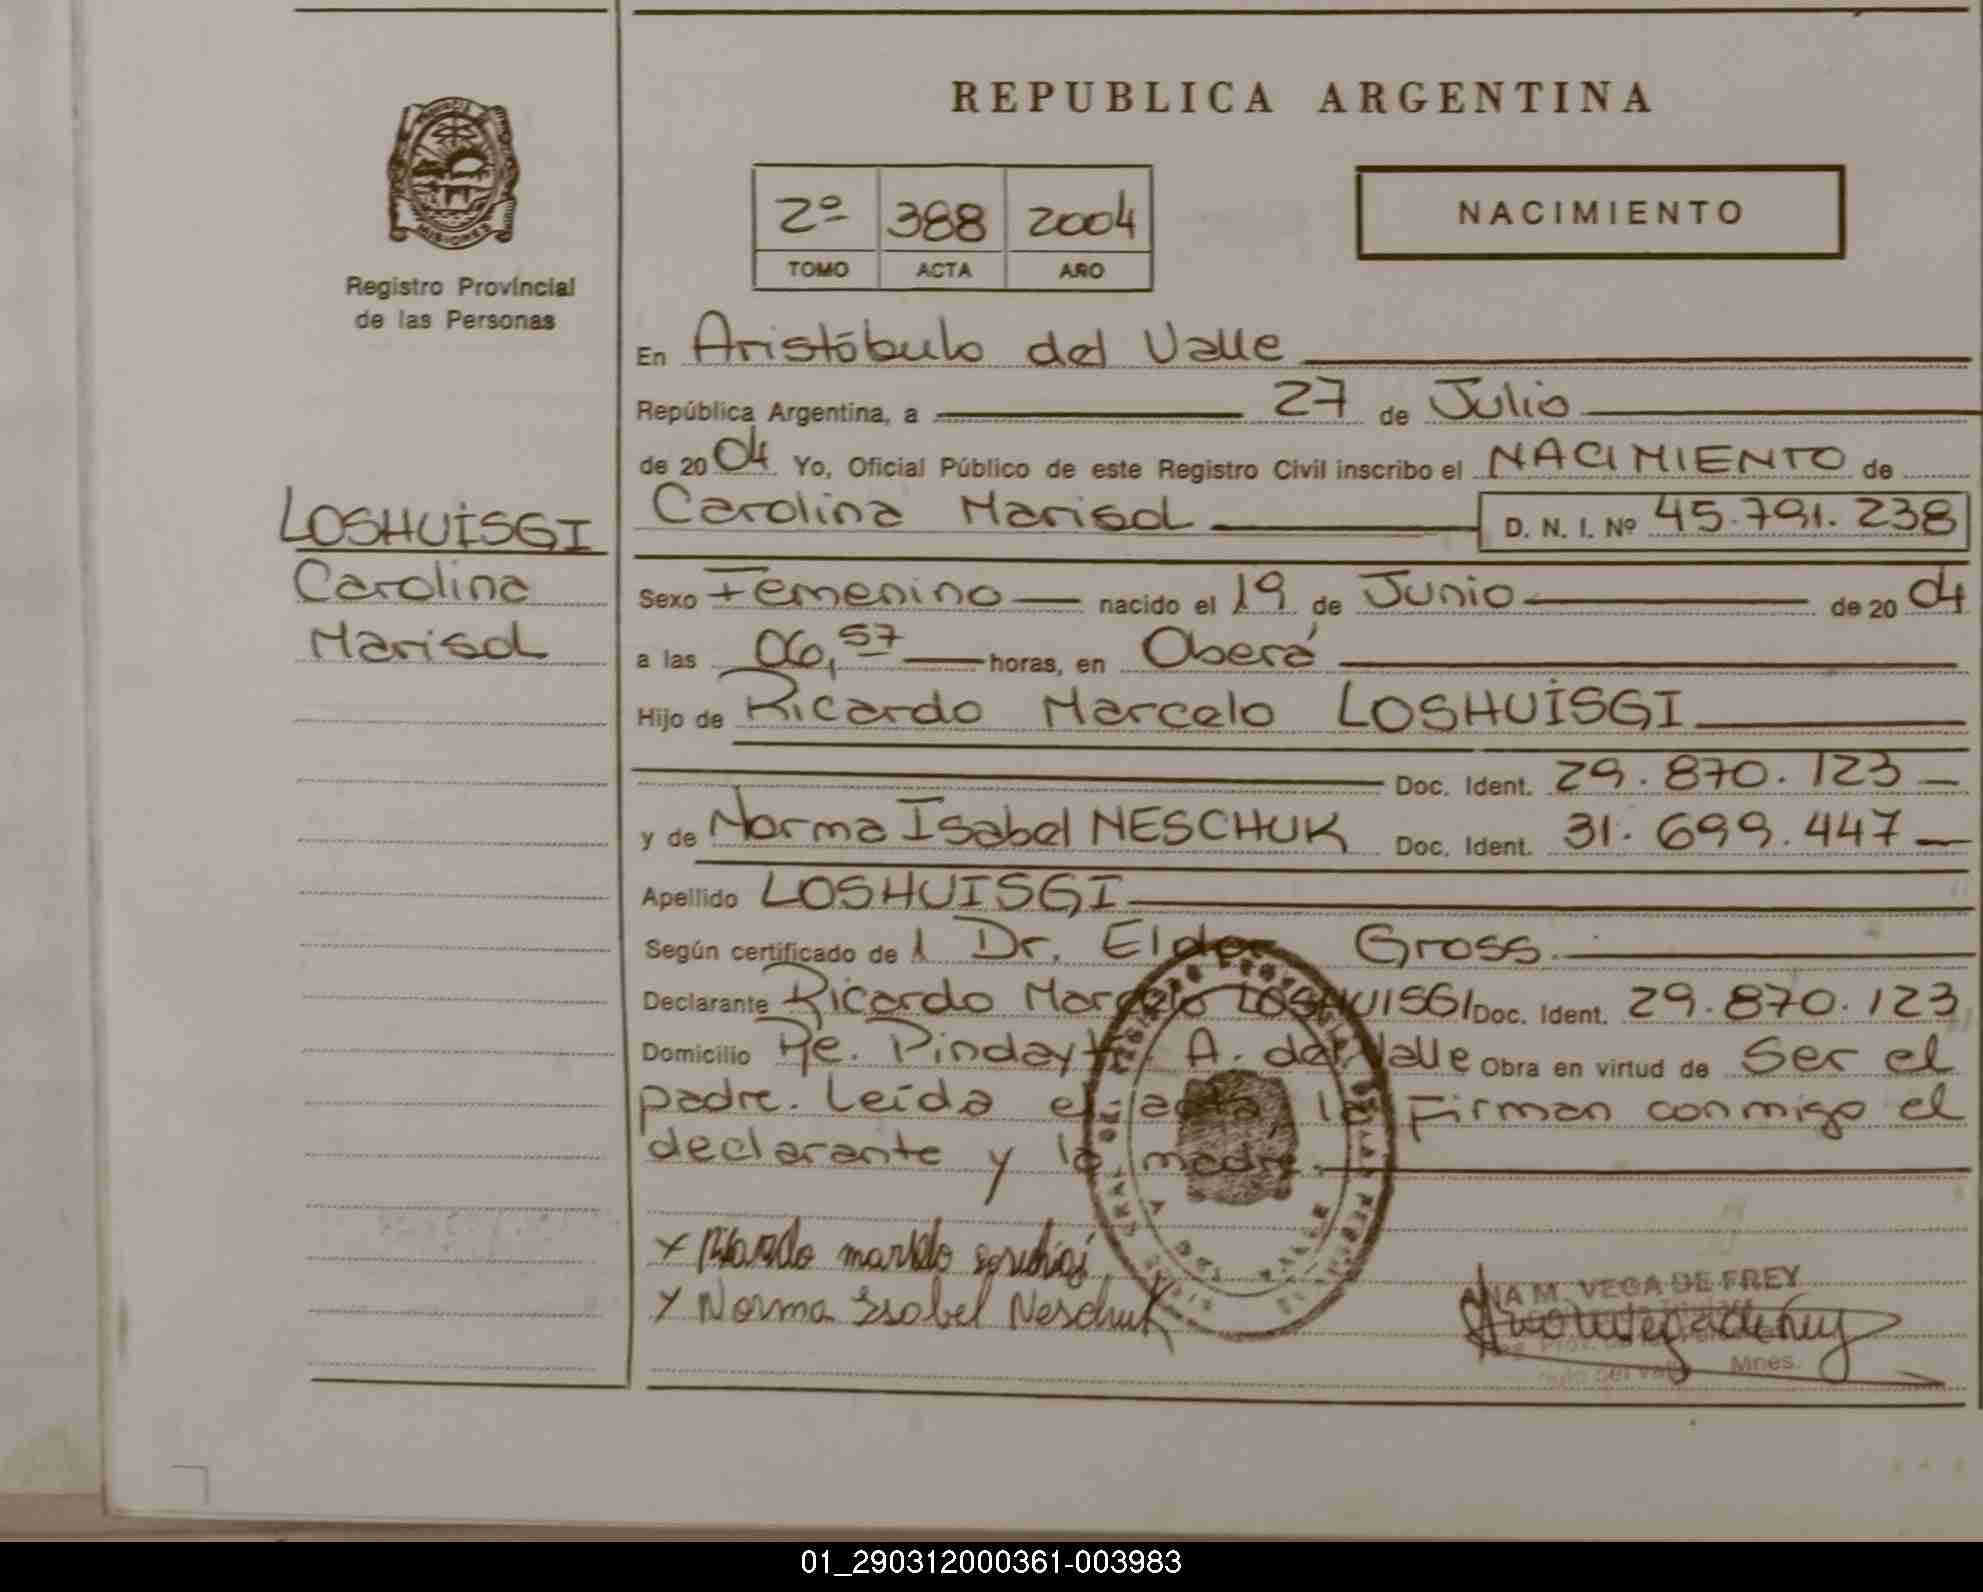 REPUBLICA ARGENTINA
MISIONES
Registro Provincial
de las Personas
2º 388 2004
TOMO ACTA AÑO
NACIMIENTO
En Aristóbulo del Valle
República Argentina, a 27 de Julio
de 2004 Yo, Oficial Público de este Registro Civil inscribo el NACIMIENTO de
Carolina Marisol D. N. I. Nº 45.791.238
LOSHUISGI
Carolina
Marisol
Sexo Femenino nacido el 19 de Junio de 2004
a las 06,57 horas, en Oberá
Hijo de Ricardo Marcelo LOSHUISGI
Doc. Ident. 29.870.123
y de Norma Isabel NESCHUK Doc. Ident. 31.699.447
Apellido LOSHUISGI
Según certificado de l Dr. Elder Gross.
Declarante Ricardo Marcelo LOSHUISGI Doc. Ident. 29.870.123
Domicilio A. del Valle Obra en virtud de ser el
padre. Leída el acta la Firman conmigo el
declarante y la madre.
x Ricardo marcelo
x Norma Isabel Neschuk
ANA M. VEGA DE FREY
Mnes.
01_290312000361-003983